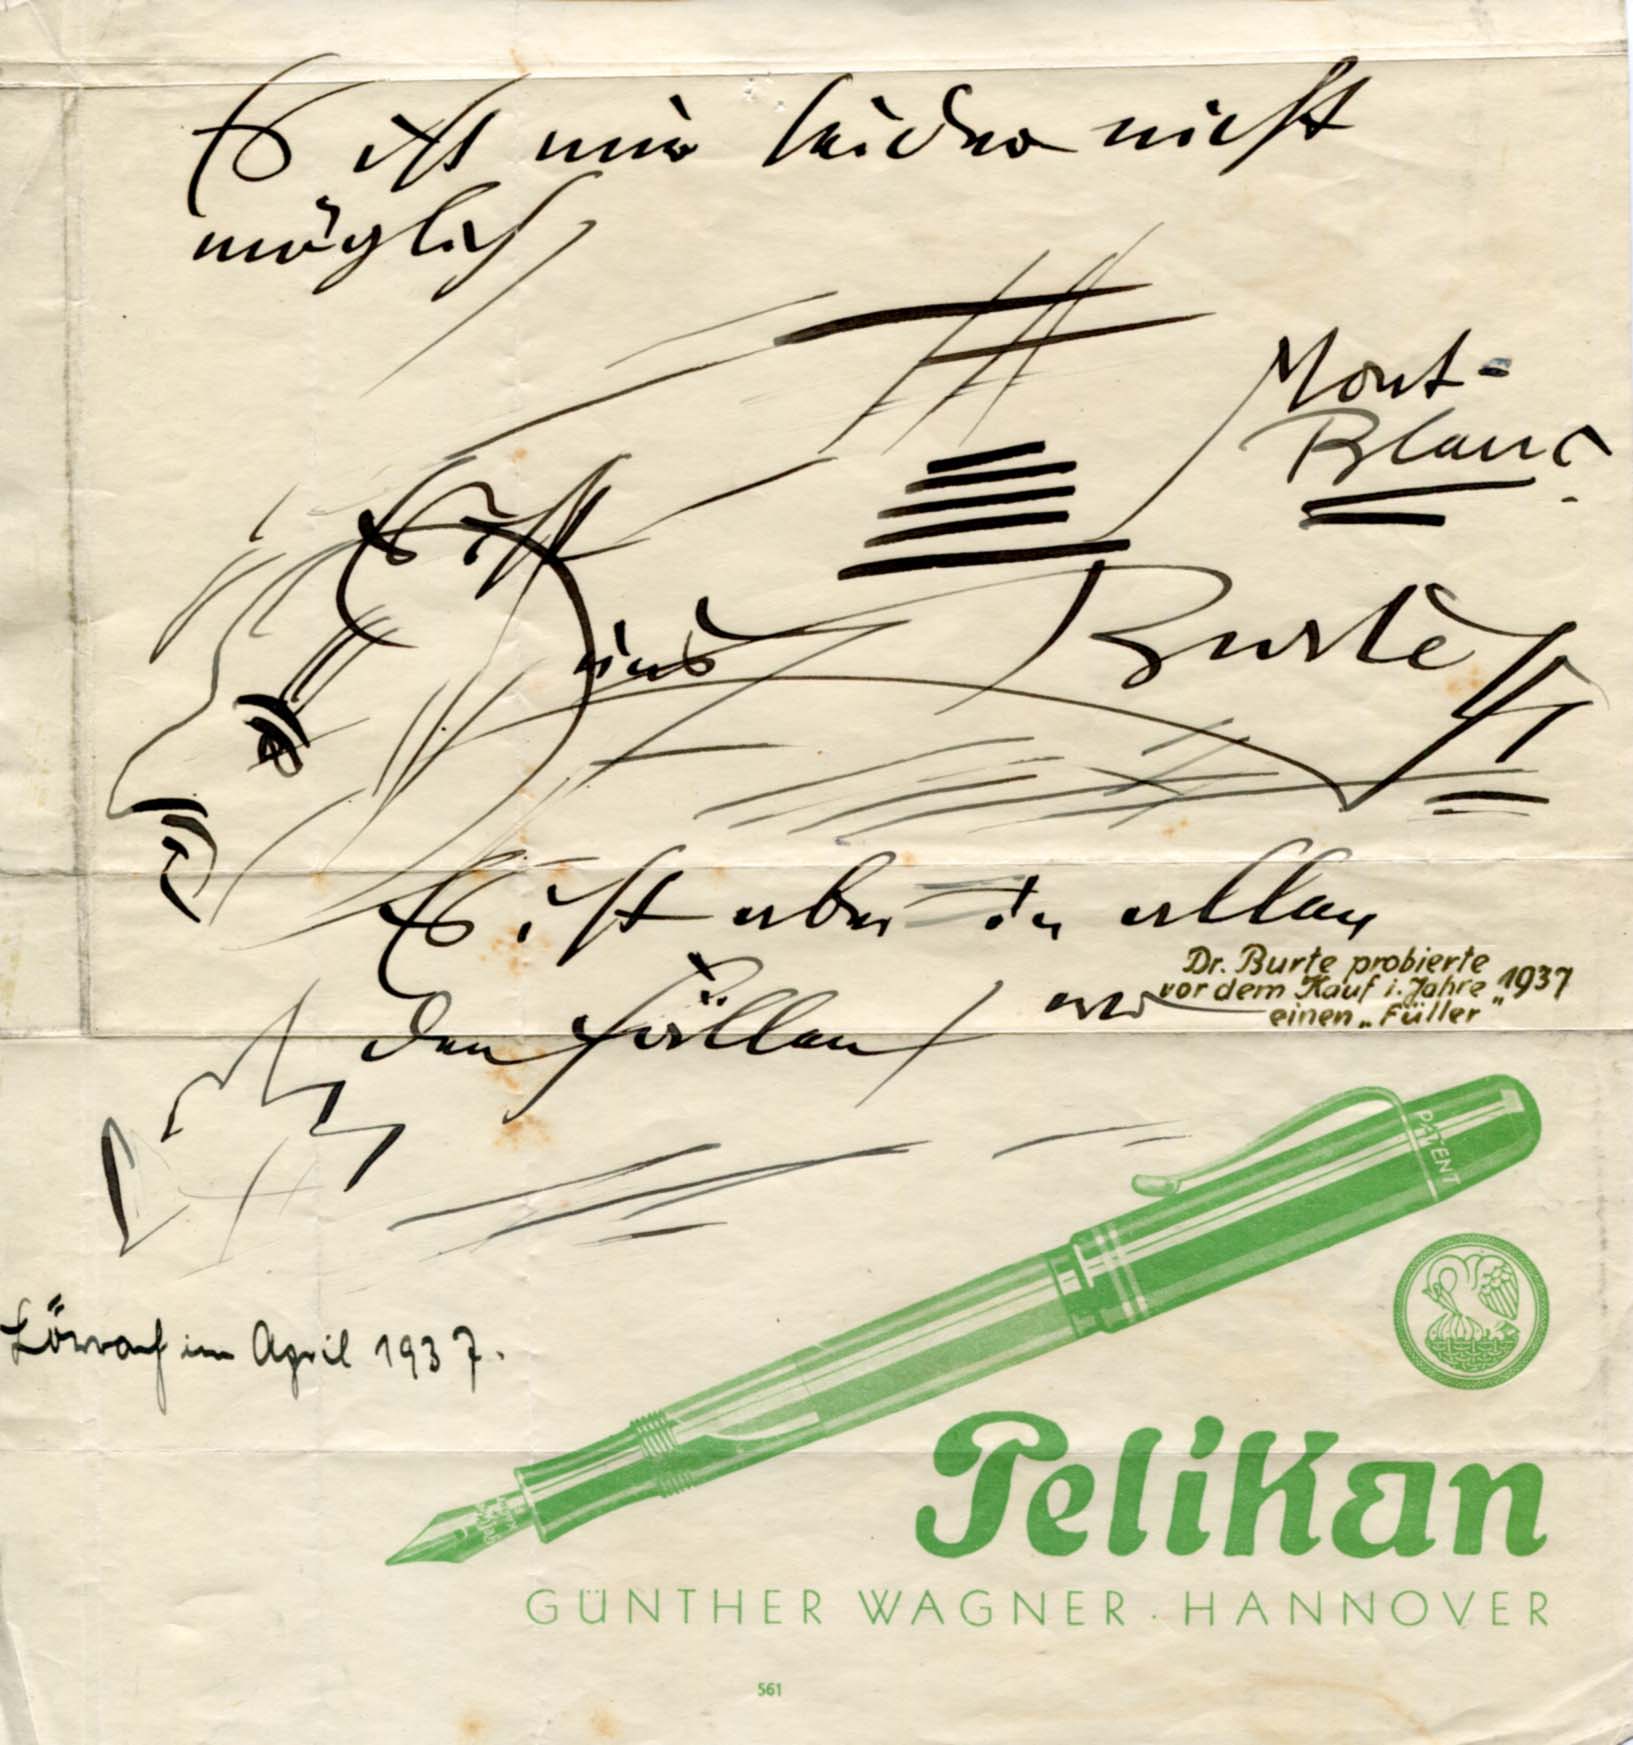 Es ist mir leider nicht
möglich
Mont-
Blanc
Es ist
Burte
Es ist aber in allen
den Füllen
Dr. Burte probierte
vor dem Kauf i. Jahre 1937
einen „Füller"
PATENT
Lörrach im April 1937.
Pelikan
GÜNTHER WAGNER · HANNOVER
561